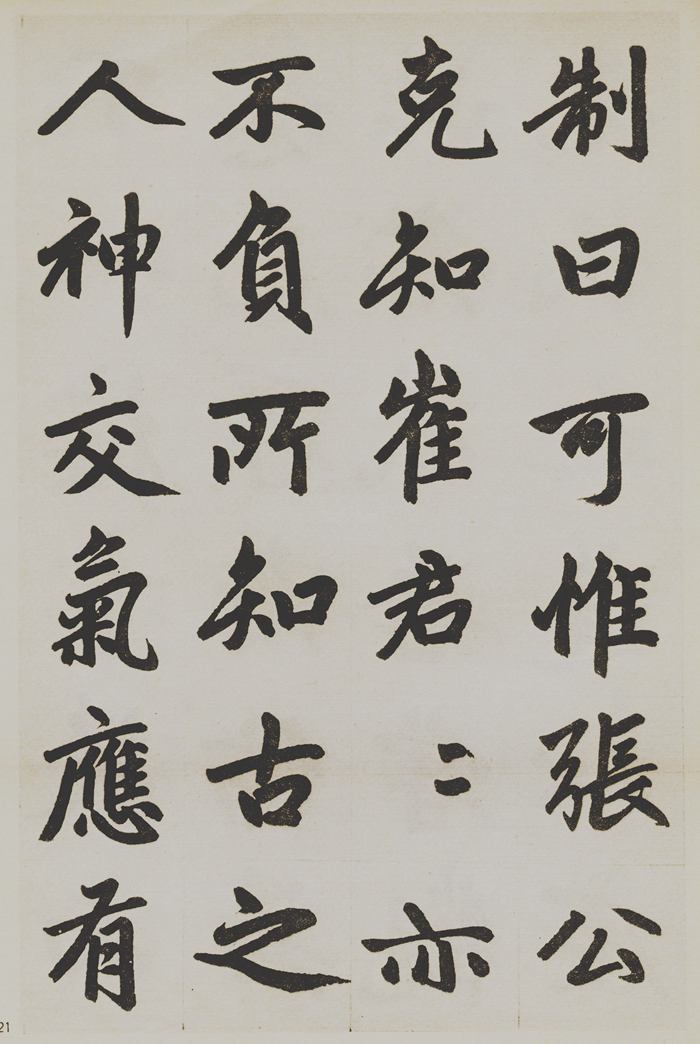 制曰可惟張公
克知崔君〻亦
不負所知古之
人神交氣應有
21